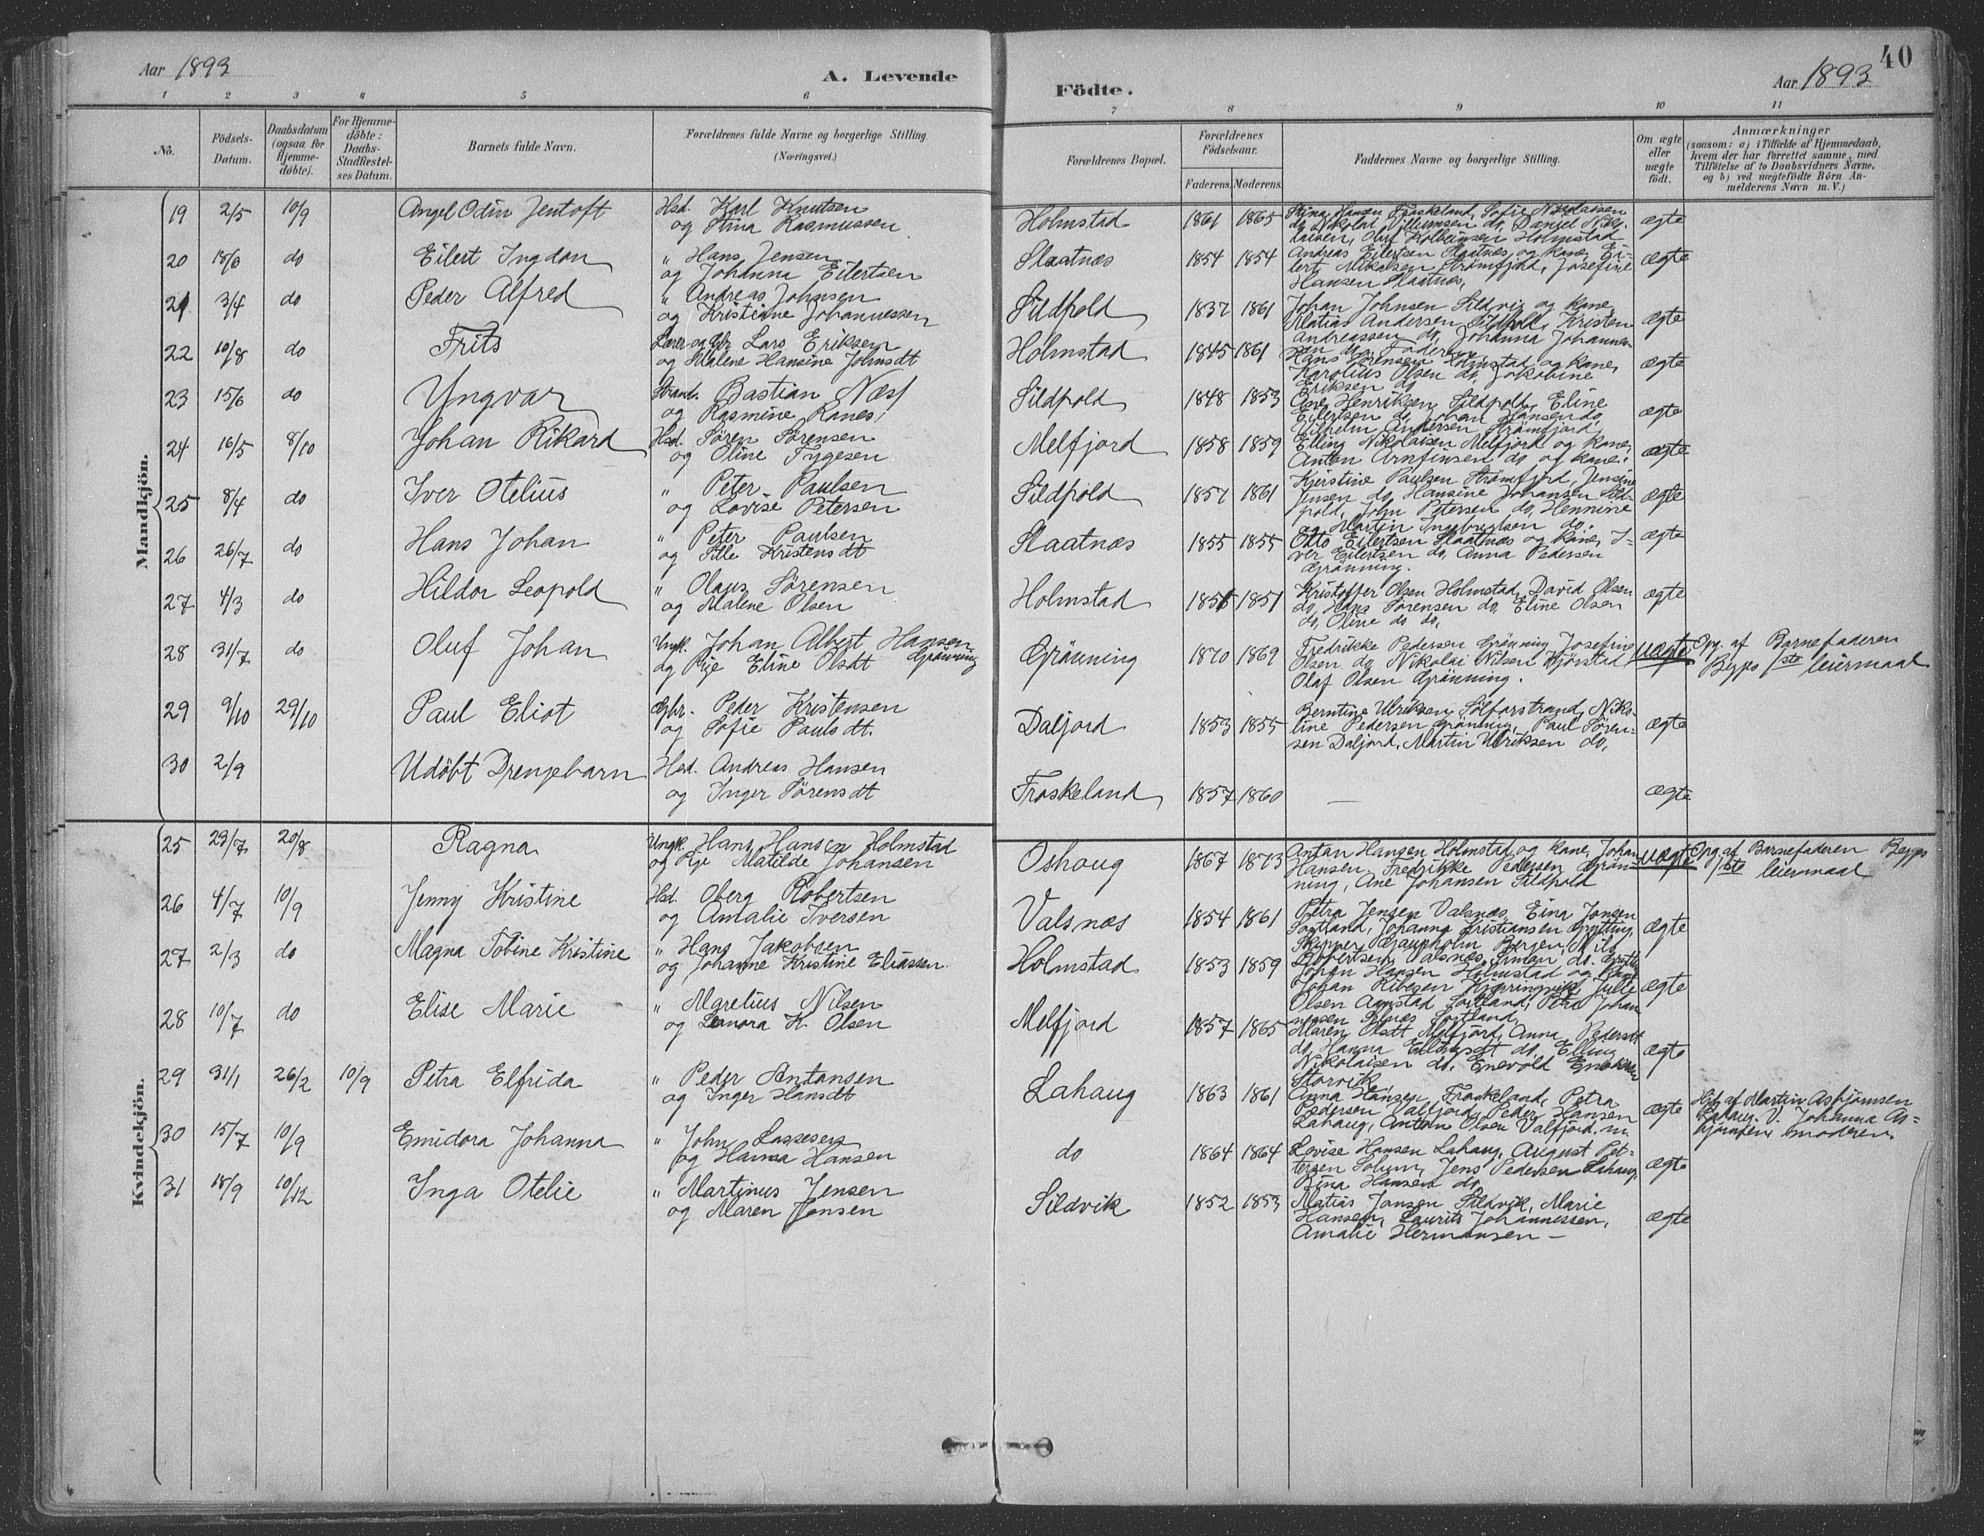 Aar 1893
A. Levende
1 2 3 4 5 6
No.
Födsels-
Datum.
Daabsdatum
(ogsaa for
Hjemme-
döbte).
For Hjemme-
döbte:
Daabs-
Stadfæstel-
ses Datum.
Barnets fulde Navn.
Forældrenes fulde Navne og borgerlige Stilling.
(Næringsvei.)
Mandkjön.
19 2/5 10/9 Angel Odin Jentoft Hsd. Karl Knutsen
og Stina Rasmussen
20 18/6 do Eilert Ingdon " Hans Jensen
og Johanna Eilertsen
21 3/4 do Peder Alfred " Andreas Johnsen
og Kristine Johannessen
22 10/8 do Frits Lærer og Gbr Lars Eriksen
og Malene Hansine Johnsdt
23 15/6 do Yngvar Strands. Bastian Næss
og Rasmine Ranes
24 16/5 8/10 Johan Rikard Hsd. Sören Sörensen
og Oline Tygesen
25 8/4 do Iver Otelius " Peter Paulsen
og Lovise Petersen
26 26/7 do Hans Johan " Peter Paulsen
og Sille Kristensdt
27 4/3 do Hildor Leopold " Olaus Sörensen
og Malene Olsen
28 31/7 do Oluf Johan Ungk. Johan Albert Hansen
og Pige Eline Olsdt Grönning
29 9/10 29/10 Paul Eliot Gbr. Peder Kristensen
og Sofie Paulsdt.
30 2/9 Udöbt Drengebarn Hsd. Andreas Hansen
og Inger Sörensdt
Kvindekjön.
25 23/7 20/8 Ragna Ungk. Hans Hansen Holmstad
og Pige Matilde Johansen
26 4/7 10/9 Jenny Kristine Hsd. Oberg Robertsen
og Amalie Iversen
27 2/3 do Magna Tobine Kristine " Hans Jakobsen
og Johanne Kristine Eliassen
28 10/7 do Elise Marie " Marelius Nilsen
og Leonora K. Olsen
29 31/1 26/2 10/9 Petra Elfrida " Peder Antonsen
og Inger Hansdt
30 15/7 10/9 Emidora Johanna " John Lassesen
og Hanna Hansen
31 18/9 10/12 Inga Otelie " Martinus Jensen
og Maren Jonsen
40
Födte.
Aar 1893
7 8 9 10 11
Forældrenes Bopæl.
Forældrenes
Födselsaar.
Faderens. Moderens.
Faddernes Navne og borgerlige Stilling.
Om ægte
eller
uægte
födt.
Anmærkninger
(saasom: a) i Tilfælde af Hjemmedaab,
hvem der har forrettet samme, med
Tilföielse af to Daabsvidners Navne.
og b) ved uægtefödte Börn An-
melderens Navn m. V.)
Holmstad 1861 1865 Stina Hansen Froskeland, Sofie Nikolaisen
do Nikolai Villumsen do, Daniel Niko-
laisen, Oluf Kolbeinsen Holmstad ægte
Slaatnæs 1854 1854 Andreas Eilertsen Slaatnæs og kane, Ei-
lert Mikalsen Strömfjord, Josefine
Hansen Slaatnæs, ægte
Sildpold 1837 1861 Johan Johnsen Sildvig og kane,
Matias Andersen Sildpold, Kristen
Andreassen do, Johanna Johannes-
sen do, Faderen ægte
Holmstad 1845 1861 Hans Sörensen Holmstad og kane,
Karolius Olsen do, Jakobine
Eriksen do ægte
Sildpold 1848 1853 Ove Henriksen Sildpold, Eline
Eilertsen do, Johan Hansen do,
Vilhelm Andersen Strömfjord ægte
Melfjord 1858 1859 Elling Nikolaisen Melfjord og kane,
Anton Arnfinsen do og kane. ægte
Sildpold 1857 1861 Kjerstine Paulsen Strömfjord, Jensine
Jensen do, Hansine Johansen Sild-
pold, John Petersen do, Hennine
og Martin Ingebrigtsen do. ægte
Slaatnæs 1855 1855 Otto Eilertsen Slaatnæs og kane, I-
ver Eilertsen do, Anna Pedersen
Grönning. ægte
Holmstad 1851 Kristoffer Olsen Holmstad, David Olsen
do, Hans Sörensen do, Eline Olsen
do, Oline do do, ægte
Grönning 1870 1869 Fredrikke Pedersen Grönning, Josefine
Olsen do, Nikolai Nilsen Kjörstad
Olaf Olsen Grönning. uægte Opg. af Barnefaderen
Begges 1ste leiermaal
Daljord 1853 1855 Berntine Ulriksen Sölfarstrand, Niko-
line Pedersen Grönning, Paul Sören-
sen Daljord, Martin Ulriksen do, ægte
Froskeland 1857 1860 — ægte
Oshaug 1867 1873 Antan Hansen Holmstad og kane, Johan
Hansen, Fredrikke Pedersen Grön-
ning, Ane Johansen Sildpold uægte Opg. af Barnefaderen Begges
1ste leiermaal
Valsnæs 1854 1861 Petra Jensen Valsnæs, Eina Jonsen
Sortland, Johanna Kristiansen
Skipper Bergen,
Robertsen Valsnæs, Simon do. ægte
Holmstad 1853 1859 Johan Hansen Holmstad og kane
Johan Ribesen Kjerringvik, Julie
Olsen Aanstad Sortland, Petra Johan
nessen Selnæs Sortland, ægte
Melfjord 1857 1865 Maren Olsdt Melfjord, Anna Pedersdt
do, Hanna Eilertsdt do, Elling
Nikolaisen do, Enevold Enoksen
Storvik, ægte
Lahaug 1863 1861 Anna Hansen Froskeland, Petra
Pedersen Valfjord, Peder Hansen
Lahaug, Anton Olsen Valfjord, m ægte Hjd. af Martin Asbjörnsen
Lahaug. V. Johanna As-
björnsen, moderen.
do 1864 1864 Lovise Hansen Lahaug, August Pet-
tersen, Jens Pedersen Lahaug,
Bina Hansen do, ægte
Sildvik 1852 1853 Matias Jonsen Sildvik, Marie
Hansen, Laurits Johannessen,
Amalie Hermansen — ægte